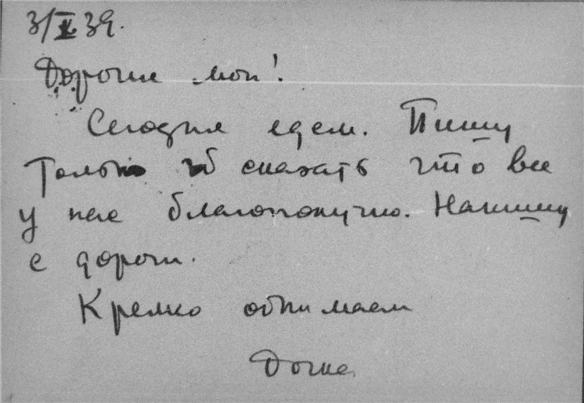 3/X 39.
Дорогие мои!
Сегодня едем. Пишу
только чтоб сказать что все
у нас благополучно. Напишу
с дороги.
Крепко обнимаем